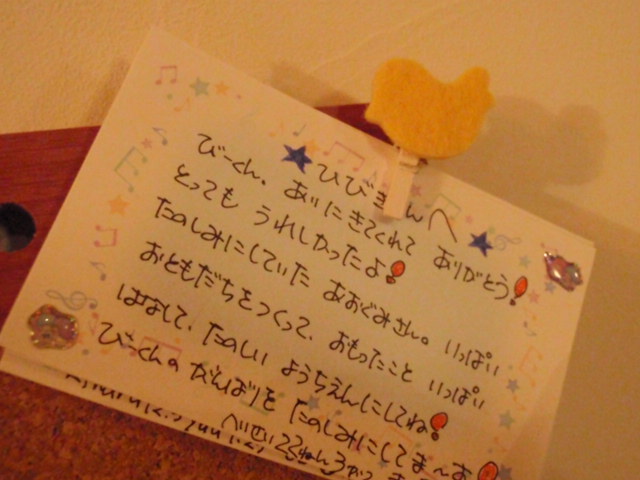 ★ひびきくんへ★
びーくん、あいにきてくれて ありがとう!
とっても うれしかったよ!
たのしみにしていた あおぐみさん。いっぱい
おともだちをつくって、おもったこと いっぱい
はなして、たのしい ようちえんにしてね!
びーくんの がんばりを たのしみにしてま〜す!
へいせい22ねん3がつ